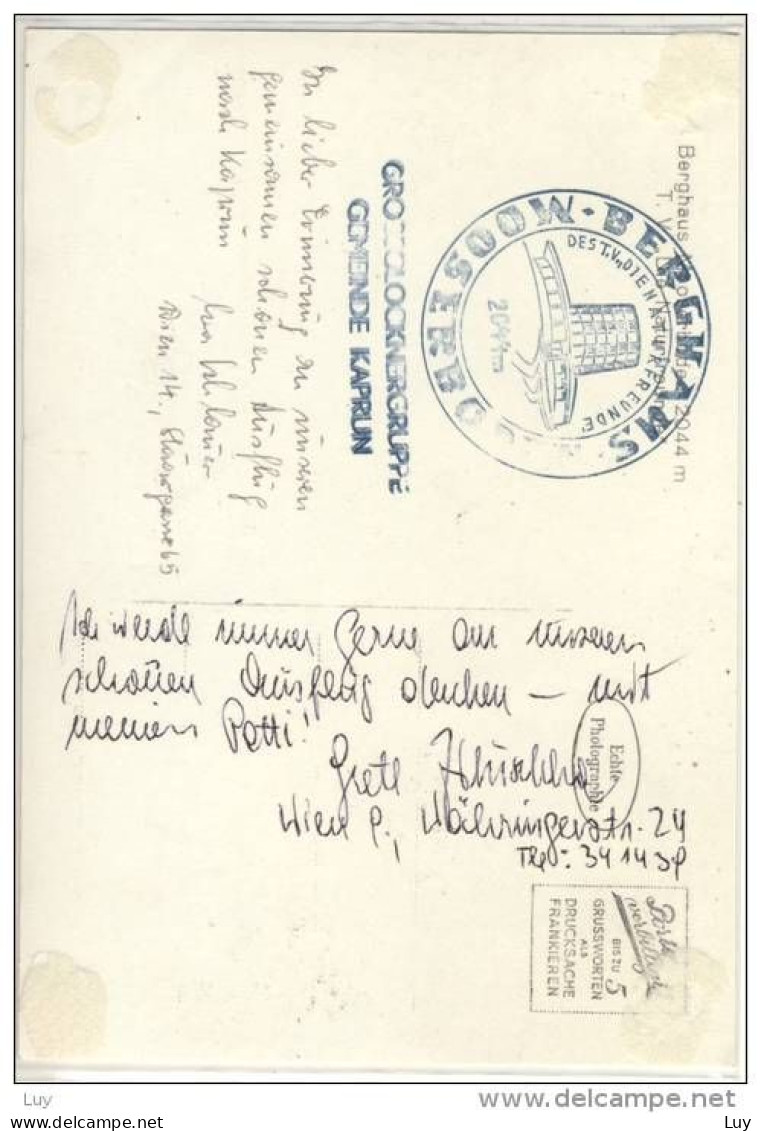 Berghaus 2044 m
T. V.
BERGHAUS MOOSERBODEN
DES T.V. "DIE NATURFREUNDE"
2044m
GROSSGLOCKNERGRUPPE
GEMEINDE KAPRUN
In lieber Erinnerung an unseren
gemeinsamen schönen Ausflug
nach Kaprun
Wien 14., 65
Ich werde immer gerne an unseren
schönen Ausflug denken – mit
meiner Petti!
Grete
Wien 9., Währingerstr. 24
Tel: 34 14
Echte
Photographie
Porto
verbilligt
BIS ZU 5
GRUSSWORTEN
ALS
DRUCKSACHE
FRANKIEREN
Luy
Luy
Luy
delcampe.net
Luy